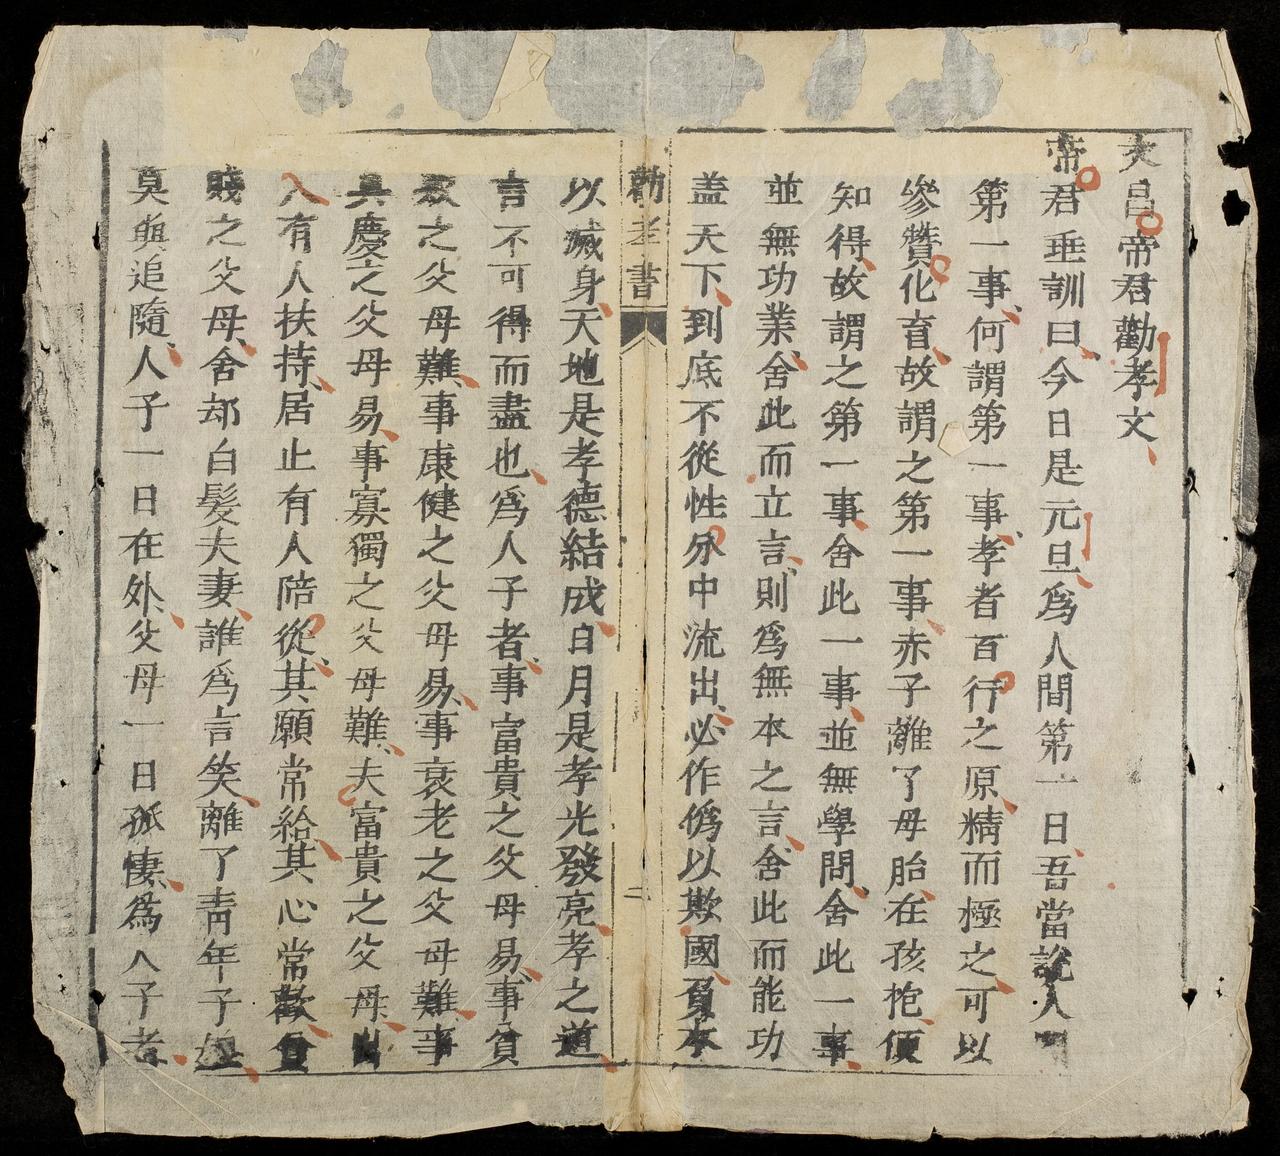 文昌帝君勸孝文
帝君垂訓曰今日是元旦爲人間第一日吾當說人
第一事何謂第一事孝者百行之原精而極之可以
參贊化育故謂之第一事赤子離了母胎在孩抱便
知得故謂之第一事舍此一事並無學問舍此一事
並無功業舍此而立言則爲無本之言舍此而能功
盖天下到底不從性分中流出必作僞以欺國負本
勸孝書
二
以滅身天地是孝德結成日月是孝光發亮孝之道
言不可得而盡也爲人子者事富貴之父母易事貧
之父母難事康健之父母易事衰老之父母難事
具慶之父母易事寡獨之父母難夫富貴之父母出
入有人扶持居止有人陪從其願常給其心常歡貧
賤之父母舍却白髮夫妻誰爲言笑離了靑年子媳
莫與追隨人子一日在外父母一日孤悽爲人子者